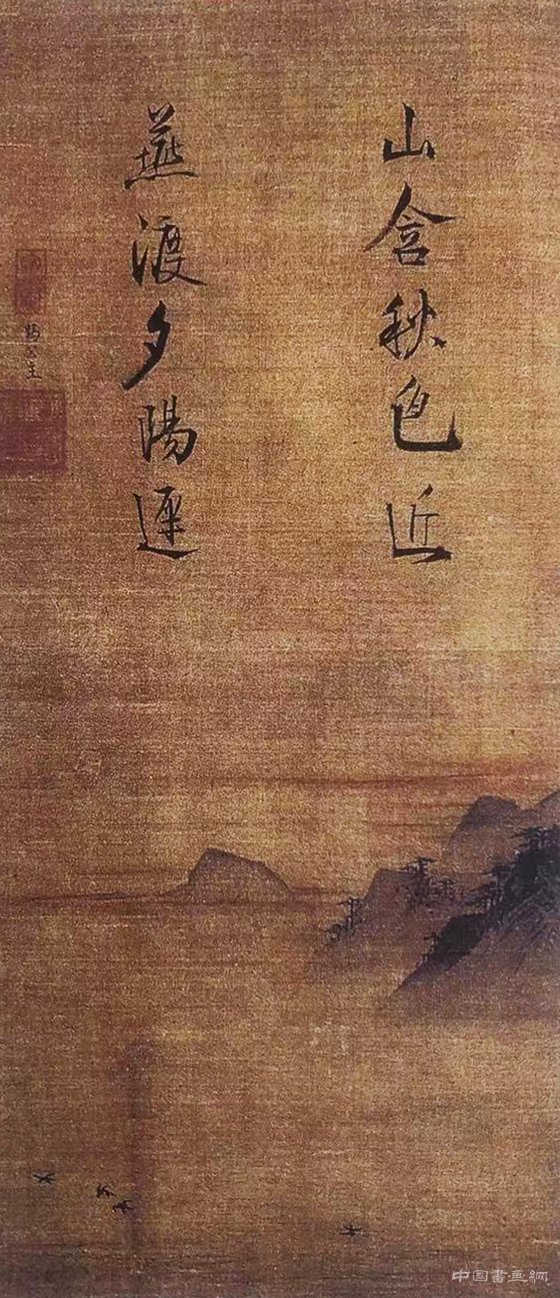 山含秋色近
燕渡夕陽遲
賜公主
中国書画網